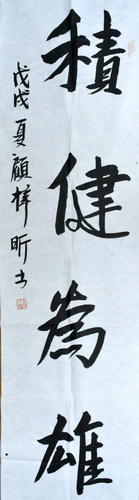 積健為雄
戊戌夏顧梓昕書